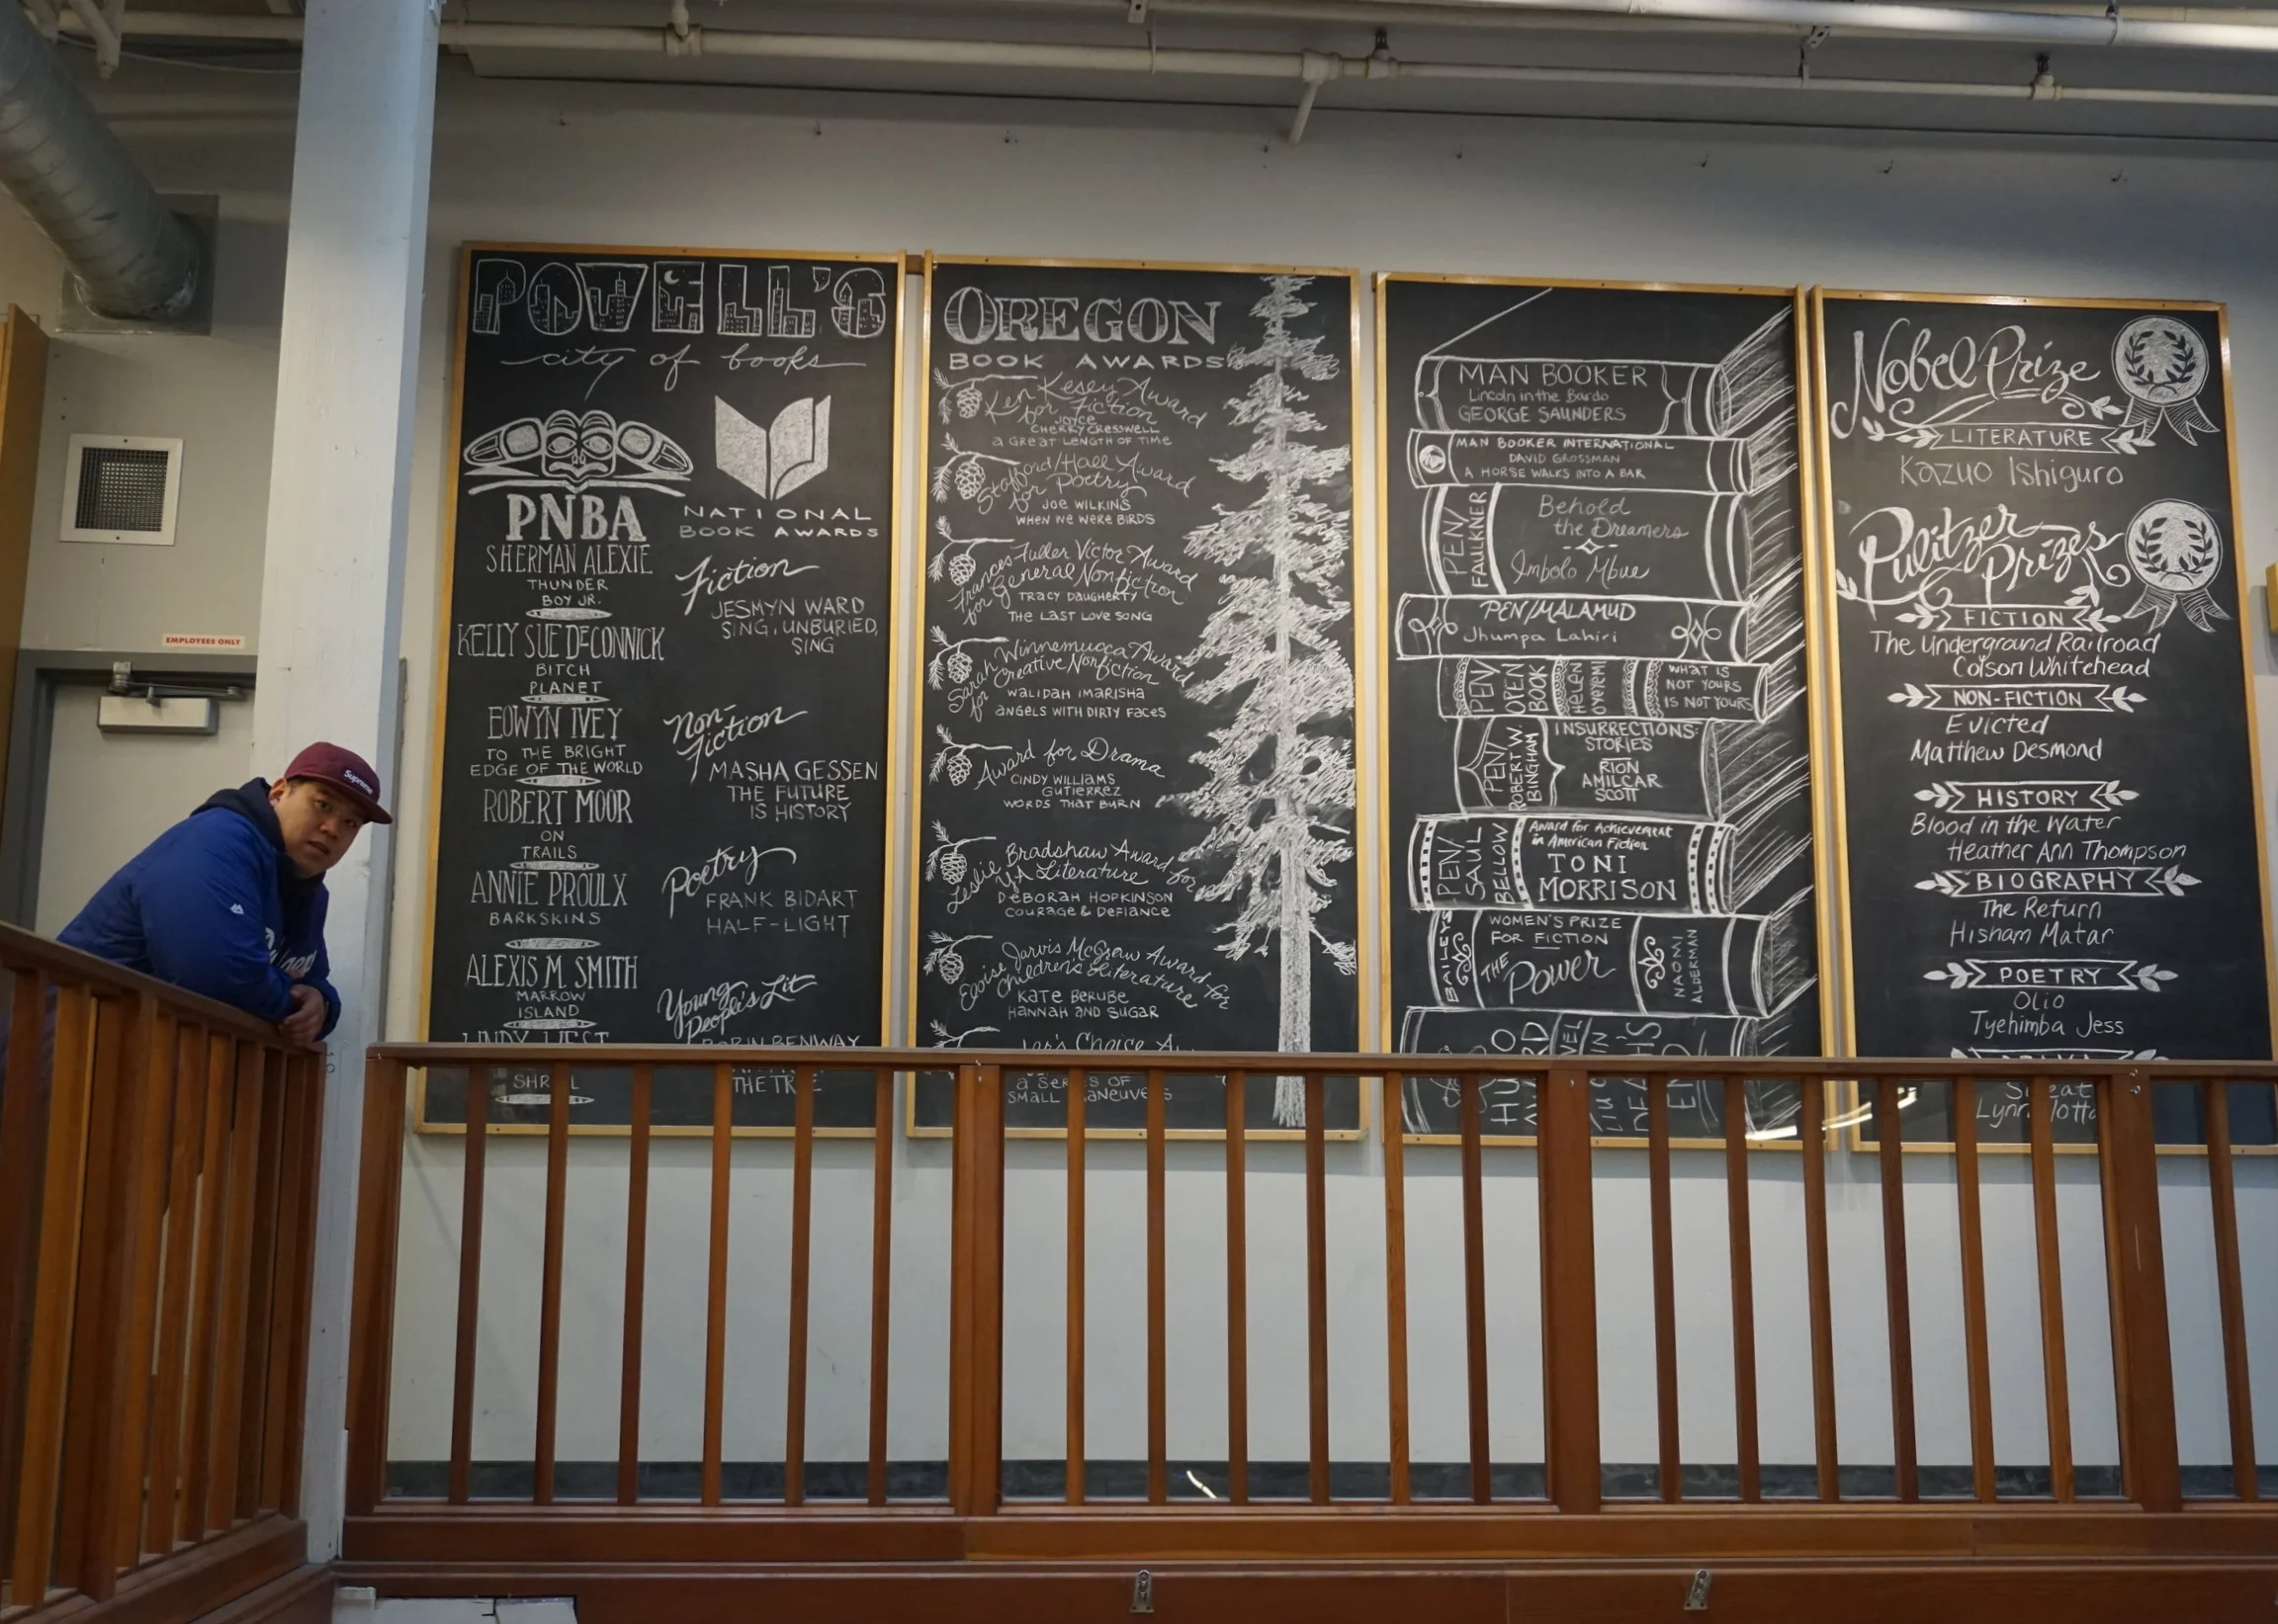 EMPLOYEES ONLY
Supreme
POWELL'S
city of books
PNBA
SHERMAN ALEXIE
THUNDER
BOY JR.
KELLY SUE DeCONNICK
BITCH
PLANET
EOWYN IVEY
TO THE BRIGHT
EDGE OF THE WORLD
ROBERT MOOR
ON
TRAILS
ANNIE PROULX
BARKSKINS
ALEXIS M. SMITH
MARROW
ISLAND
LINDY WEST
SHRILL
NATIONAL
BOOK AWARDS
Fiction
JESMYN WARD
SING, UNBURIED,
SING
Non-
Fiction
MASHA GESSEN
THE FUTURE
IS HISTORY
Poetry
FRANK BIDART
HALF-LIGHT
Young
People's Lit
ROBIN BENWAY
THE TREE
OREGON
BOOK AWARDS
Ken Kesey Award
for Fiction
JOYCE
CHERRY CRESSWELL
A GREAT LENGTH OF TIME
Stafford/Hall Award
for Poetry
JOE WILKINS
WHEN WE WERE BIRDS
Frances Fuller Victor Award
for General Nonfiction
TRACY DAUGHERTY
THE LAST LOVE SONG
Sarah Winnemucca Award
for Creative Nonfiction
WALIDAH IMARISHA
ANGELS WITH DIRTY FACES
Award for Drama
CINDY WILLIAMS
GUTIERREZ
WORDS THAT BURN
Leslie Bradshaw Award for
YA Literature
DEBORAH HOPKINSON
COURAGE & DEFIANCE
Eloise Jarvis McGraw Award for
Children's Literature
KATE BERUBE
HANNAH AND SUGAR
Choice
A SERIES OF
SMALL MANEUVERS
MAN BOOKER
Lincoln in the Bardo
GEORGE SAUNDERS
MAN BOOKER INTERNATIONAL
DAVID GROSSMAN
A HORSE WALKS INTO A BAR
PEN/
FAULKNER
Behold
the Dreamers
Imbolo Mbue
PEN/MALAMUD
Jhumpa Lahiri
PEN/
OPEN
BOOK
HELEN
OYEYEMI
WHAT IS
NOT YOURS
IS NOT YOURS
PEN/
ROBERT W.
BINGHAM
INSURRECTIONS:
STORIES
RION
AMILCAR
SCOTT
PEN/
SAUL
BELLOW
Award for Achievement
in American Fiction
TONI
MORRISON
BAILEYS
WOMEN'S PRIZE
FOR FICTION
THE Power
NAOMI
ALDERMAN
HUGO
Nobel Prize
LITERATURE
Kazuo Ishiguro
Pulitzer
Prizes
FICTION
The Underground Railroad
Colson Whitehead
NON-FICTION
Evicted
Matthew Desmond
HISTORY
Blood in the Water
Heather Ann Thompson
BIOGRAPHY
The Return
Hisham Matar
POETRY
Olio
Tyehimba Jess
Sweat
Lynn Nottage